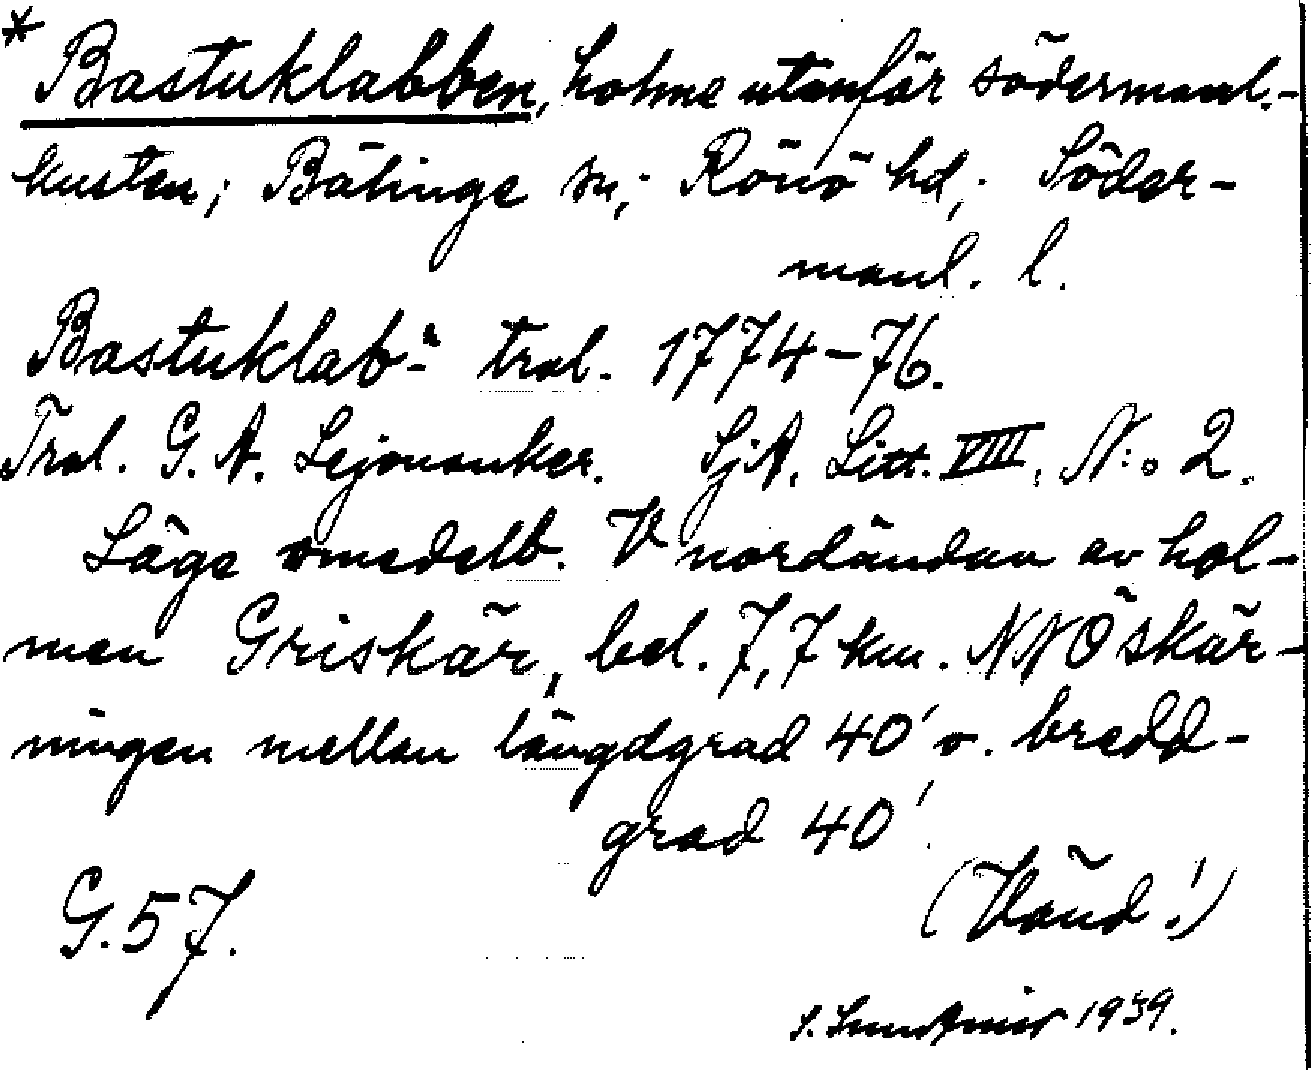 * Bastuklabben, holme utanför södermanl.-
kusten; Bälinge sn; Rönö hd; Söder-
manl. l.
Bastuklab-: trol. 1774-76.
Trol. G. A. Lejonanker. SjA. Litt. VIII, N:o 2.
Läge omedelb. V nordändan av hol-
men Griskär, bel. 7,7 km. NNÖ skär-
ningen mellan längdgrad 40' o. bredd-
grad 40'.
G. 57. (Vänd!)
1939.